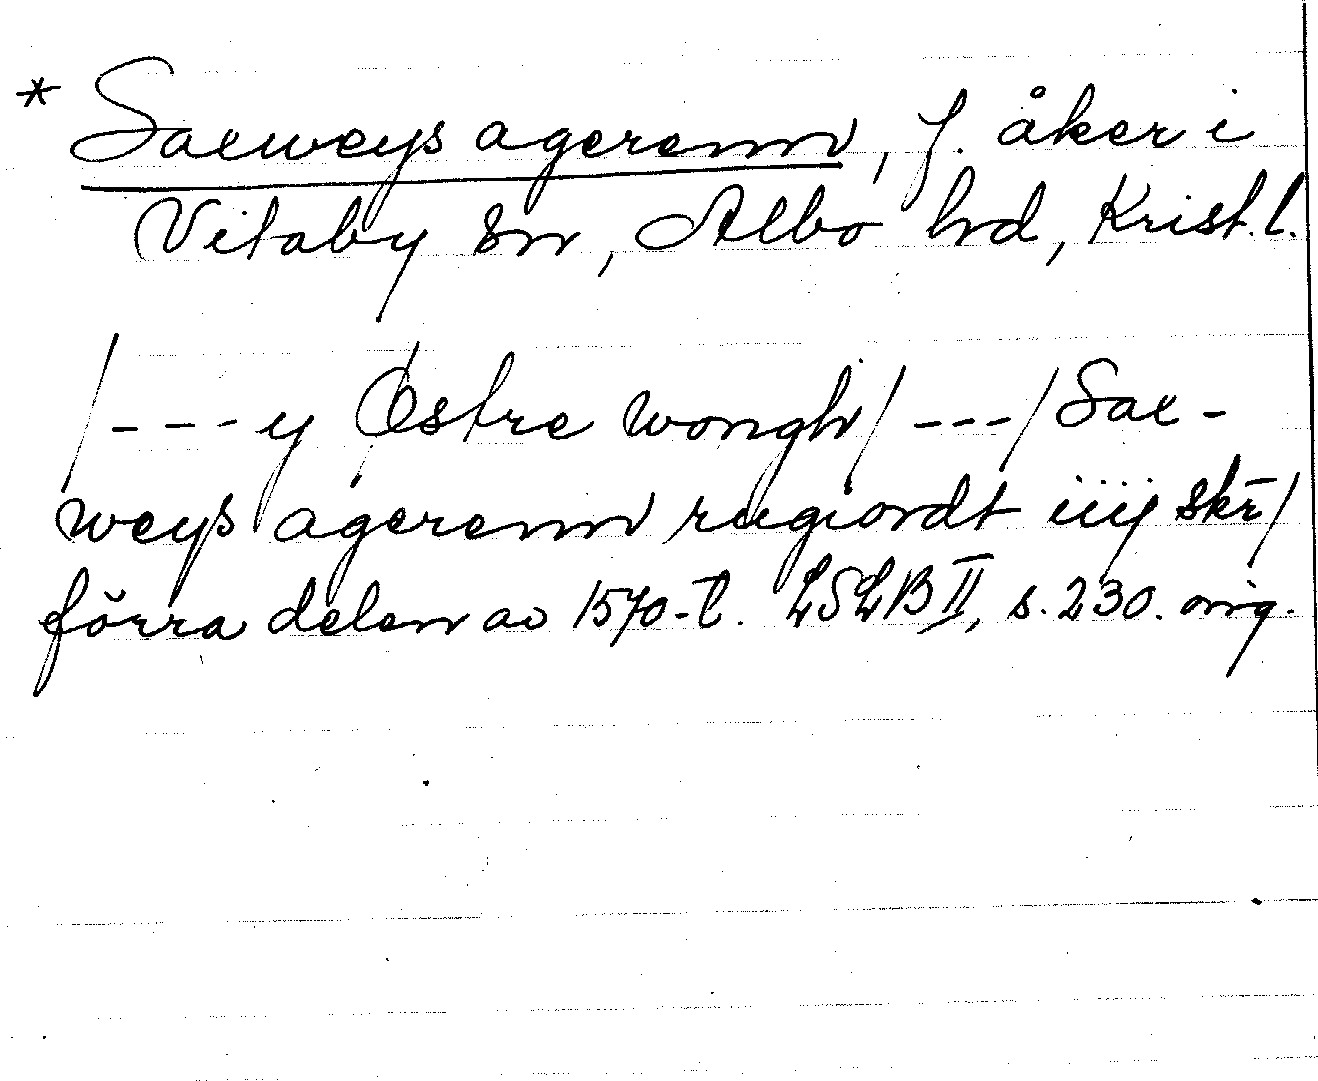 * Saxweys agerenn, f. åker i
Vitaby sn, Albo hd, Krist. l.
/---y Østre wongh/---/Sax-
weys agerenn rugiordt iiij skr̄/
förra delen av 1570-t. LSLB II, s. 230.